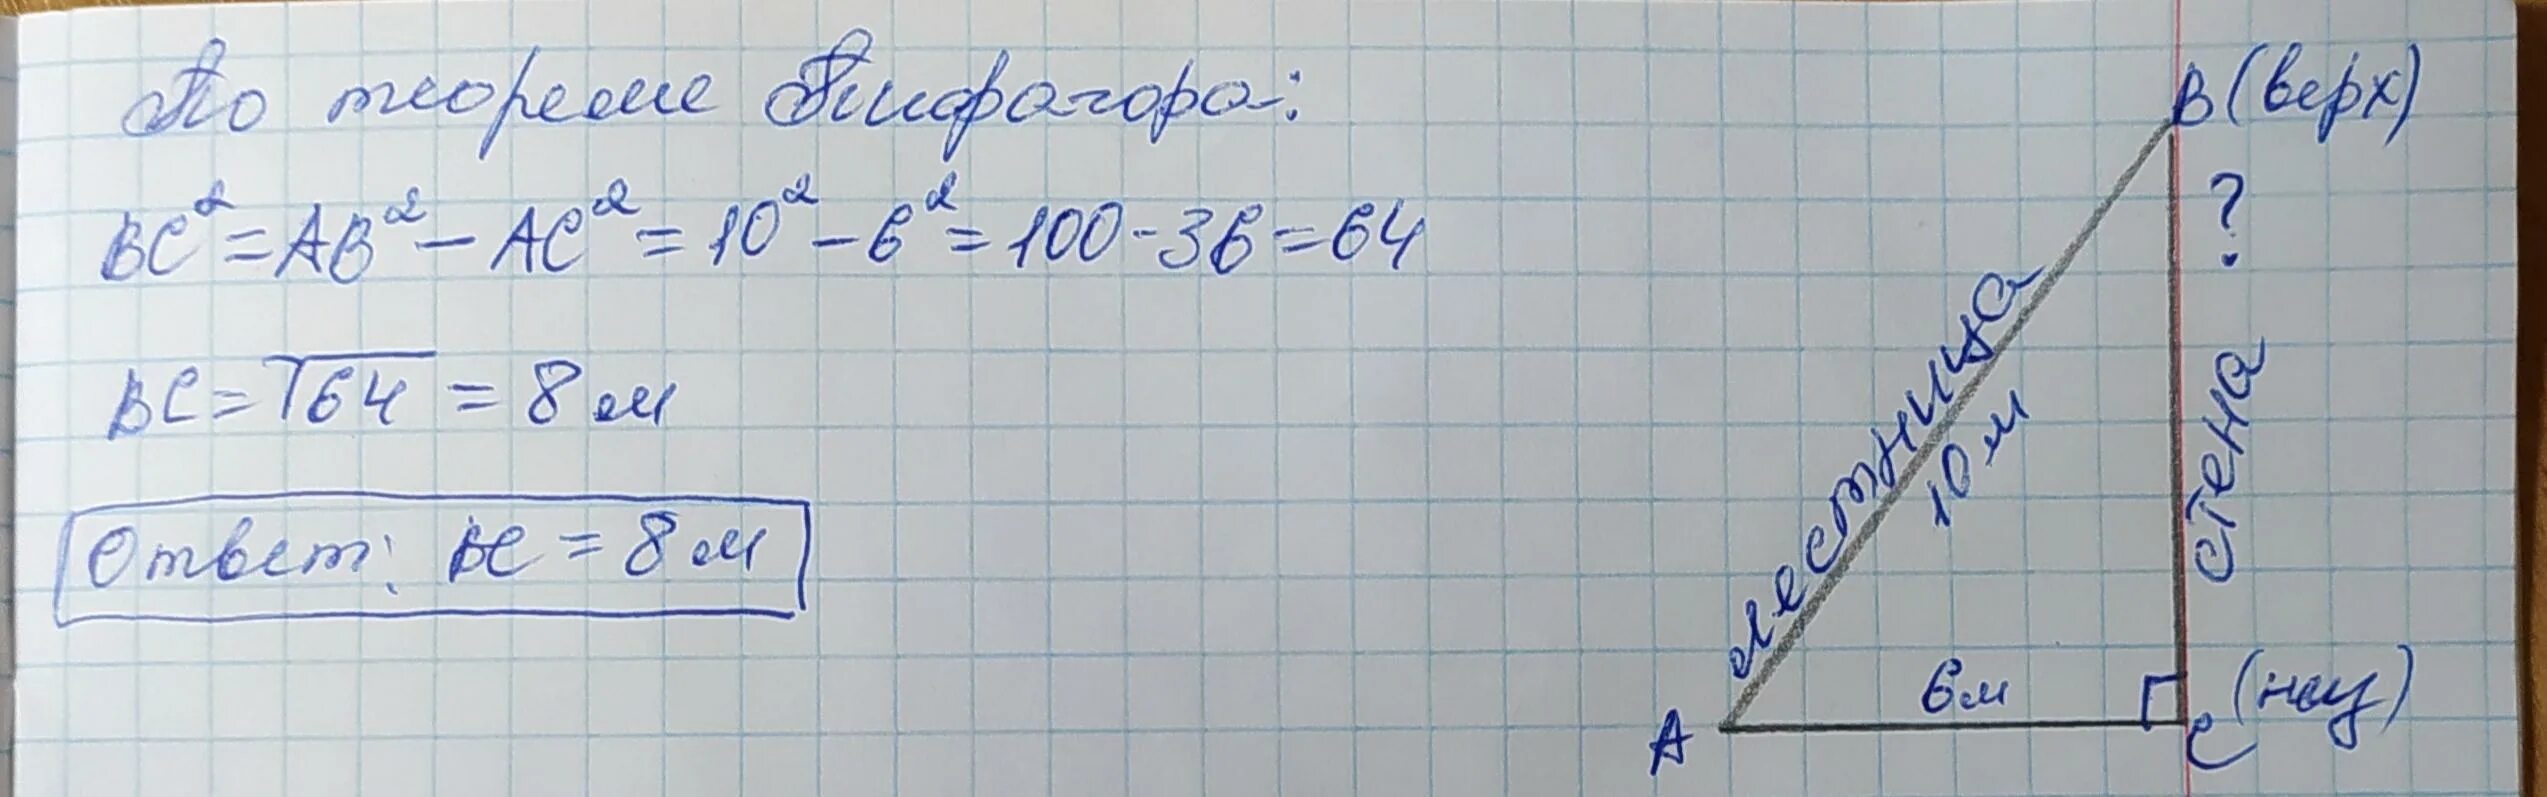 По теореме Пифагора:
BC² = AB² − AC² = 10² − 6² = 100 - 36 = 64
BC = √64 = 8 м
Ответ: BC = 8 м
B (верх)
?
лестница
10 м
стена
6 м
A
C (низ)